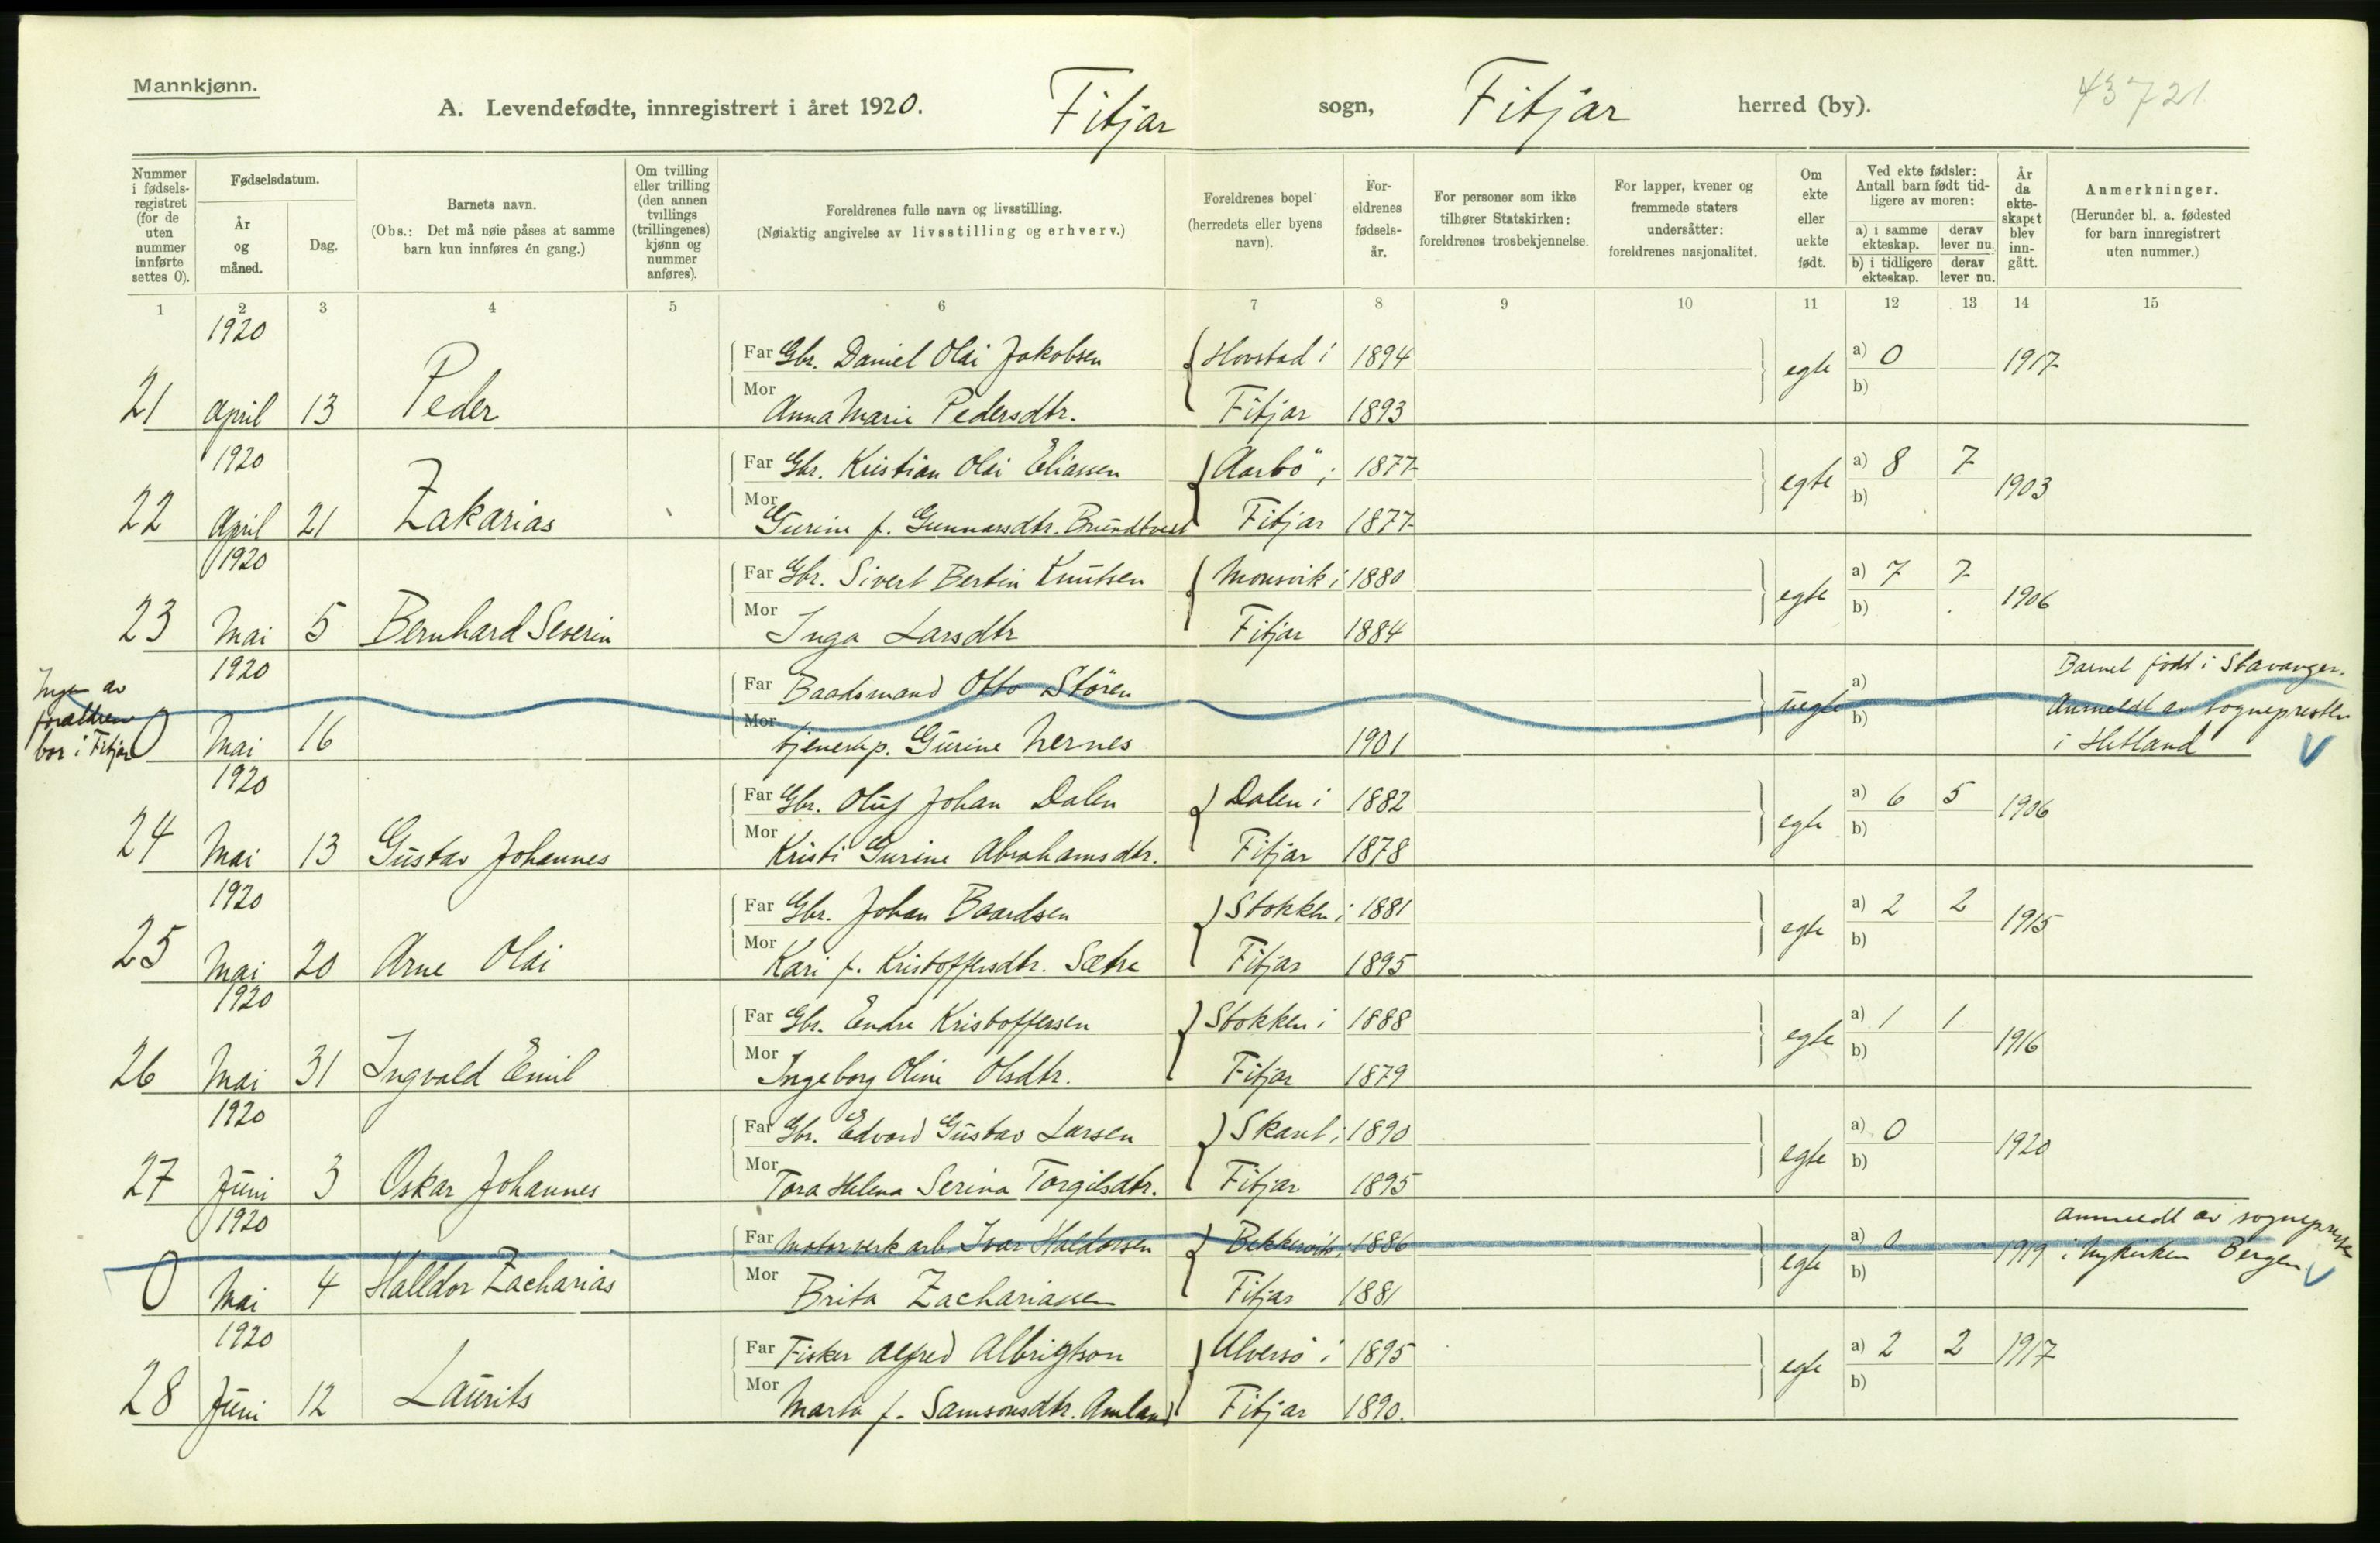 Mannkjønn.
A. Levendefødte, innregistrert i året 1920. Fitjar sogn, Fitjar herred (by). 43721
Nummer i fødsels-registret (for de uten nummer innførte settes 0).
Fødselsdatum.
År og måned.
Dag.
Barnets navn.
(Obs.: Det må nøie påses at samme barn kun innføres én gang.)
Om tvilling eller trilling (den annen tvillings (trillingenes) kjønn og nummer anføres).
Foreldrenes fulle navn og livsstilling.
(Nøiaktig angivelse av livsstilling og erhverv.)
Foreldrenes bopel (herredets eller byens navn).
For-eldrenes fødsels-år.
For personer som ikke tilhører Statskirken: foreldrenes trosbekjennelse.
For lapper, kvener og fremmede staters undersåtter: foreldrenes nasjonalitet.
Om ekte eller uekte født.
Ved ekte fødsler: Antall barn født tid-ligere av moren:
a) i samme ekteskap. derav lever nu.
b) i tidligere ekteskap. derav lever nu.
År da ekte-skapet blev inn-gått.
Anmerkninger.
(Herunder bl. a. fødested for barn innregistrert uten nummer.)
1 2 3 4 5 6 7 8 9 10 11 12 13 14 15
1920 Far Gbr. Daniel Olai Jakobsen Hovstad i 1894 egte a) 0 1917
21 April 13 Peder Mor Anna Marie Pedersdtr. Fitjar 1893 b)
1920 Far Gbr. Kristian Olai Eliassen Aarbö i 1877 egte a) 8 7 1903
22 April 21 Zakarias Mor Gurine f. Gunnarsdtr. Brundtveit Fitjar 1877 b)
1920 Far Gbr. Sivert Bertin Knutsen Mousvik i 1880 egte a) 7 7 1906
23 Mai 5 Bernhard Severin Mor Inga Larsdtr Fitjar 1884 b)
Ingen av forældrene bor i Fitjar
1920 Far Baadsmand Otto Stören uegte a) Barnet født i Stavanger.
0 Mai 16 Mor tjenestep. Gurine Nernes 1901 b) Anmeldt av sognepresten i Hetland
1920 Far Gbr. Oluf Johan Dalen Dalen i 1882 egte a) 6 5 1906
24 Mai 13 Gustav Johannes Mor Kristi Gurine Abrahamsdtr. Fitjar 1878 b)
1920 Far Gbr. Johan Baardsen Stokken i 1881 egte a) 2 2 1915
25 Mai 20 Arne Olai Mor Kari f. Kristoffersdtr. Sætre Fitjar 1895 b)
1920 Far Gbr. Endre Kristoffersen Stokken i 1888 egte a) 1 1 1916
26 Mai 31 Ingvald Emil Mor Ingeborg Oline Olsdtr. Fitjar 1879 b)
1920 Far Gbr. Edvard Gustav Larsen Skaret i 1890 egte a) 0 1920
27 Juni 3 Oskar Johannes Mor Tora Helena Serina Torgilsdtr. Fitjar 1895 b)
1920 Far Motorverk arb. Ivar Haldorsen i 1886 egte a) 0 1919 anmeldt av sogneprest
0 Mai 4 Halldor Zacharias Mor Brita Zachariassen Fitjar 1881 b) i Nykirken Bergen.
1920 Far Fisker Alfred Albrigtson Ulversö i 1895 egte a) 2 2 1917
28 Juni 12 Laurits Mor Marta f. Samsonsdtr. Amland Fitjar 1890. b)